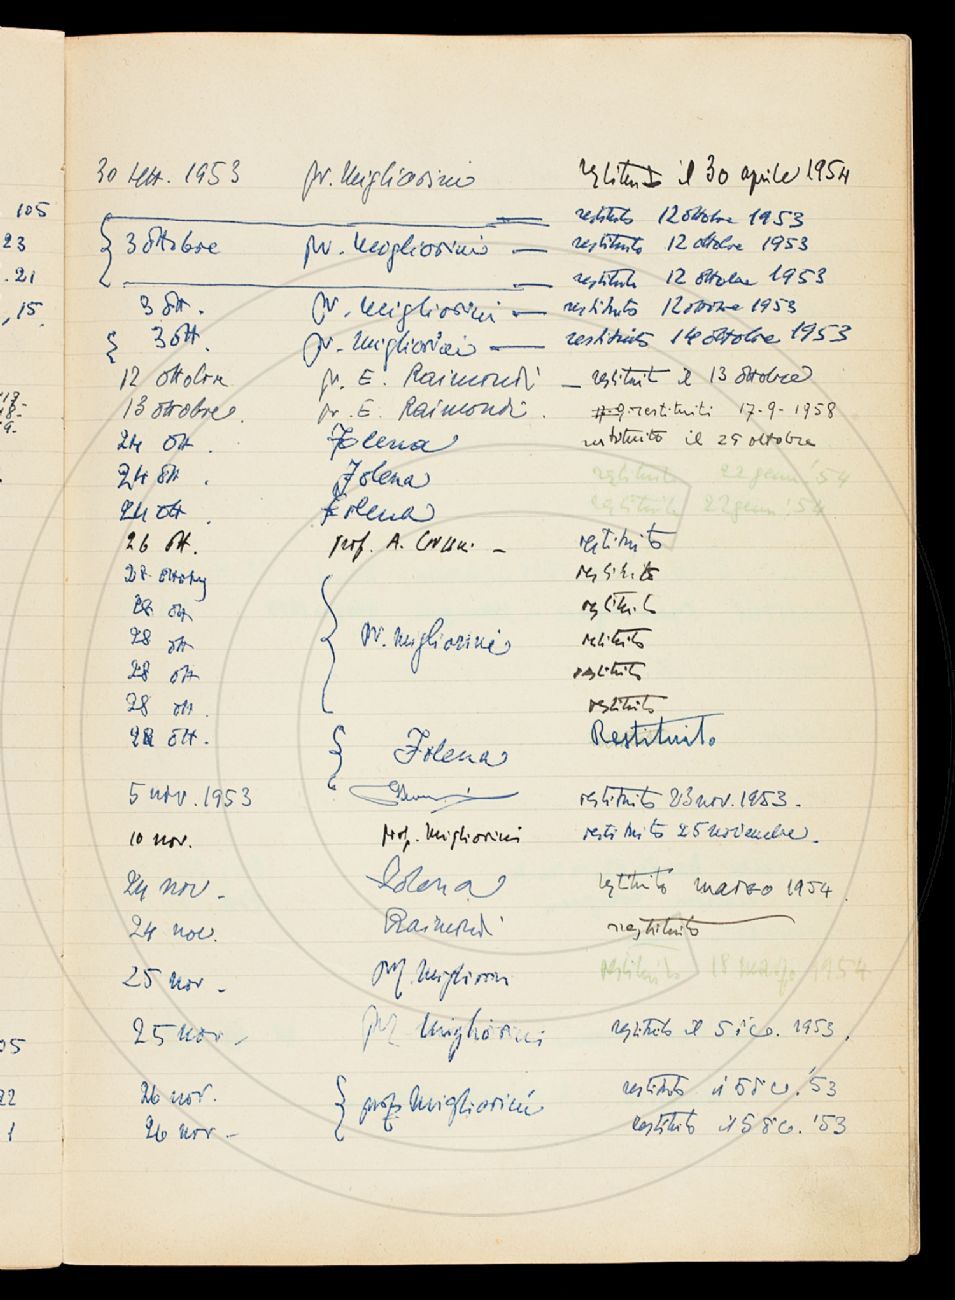 30 sett. 1953 pr. Migliorini restituito il 30 aprile 1954
105 restituito 12 ottobre 1953
23 3 ottobre pr. Migliorini — restituito 12 ottobre 1953
21 restituito 12 ottobre 1953
15 3 ott. pr. Migliorini — restituito 12 ottobre 1953
3 ott. pr. Migliorini — restituito 14 ottobre 1953
12 ottobre pr. E. Raimondi — restituit il 13 ottobre
13 ottobre. pr. E. Raimondi. restituiti 17-9-1958
24 ott. Folena restituito il 29 ottobre
24 ott. Folena restituito 22 genn. '54
24 ott. Folena restituito 22 genn. '54
26 ott. prof. A. – restituito
28 ottobre restituito
28 ott restituito
28 ott pr. Migliorini restituito
28 ott restituito
28 ott. restituito
28 ott. Folena Restituito
5 nov. 1953 restituito 23 nov. 1953.
10 nov. prof. Migliorini restituito 25 novembre.
24 nov. Folena restituito marzo 1954.
24 nov. Raimondi restituito
25 nov. prof. Migliorini restituito 18 marzo 1954
25 nov. prof. Migliorini restituito il 5 dic. 1953.
26 nov. prof. Migliorini restituito il 5 dic. '53
26 nov. restituito il 5 dic. '53